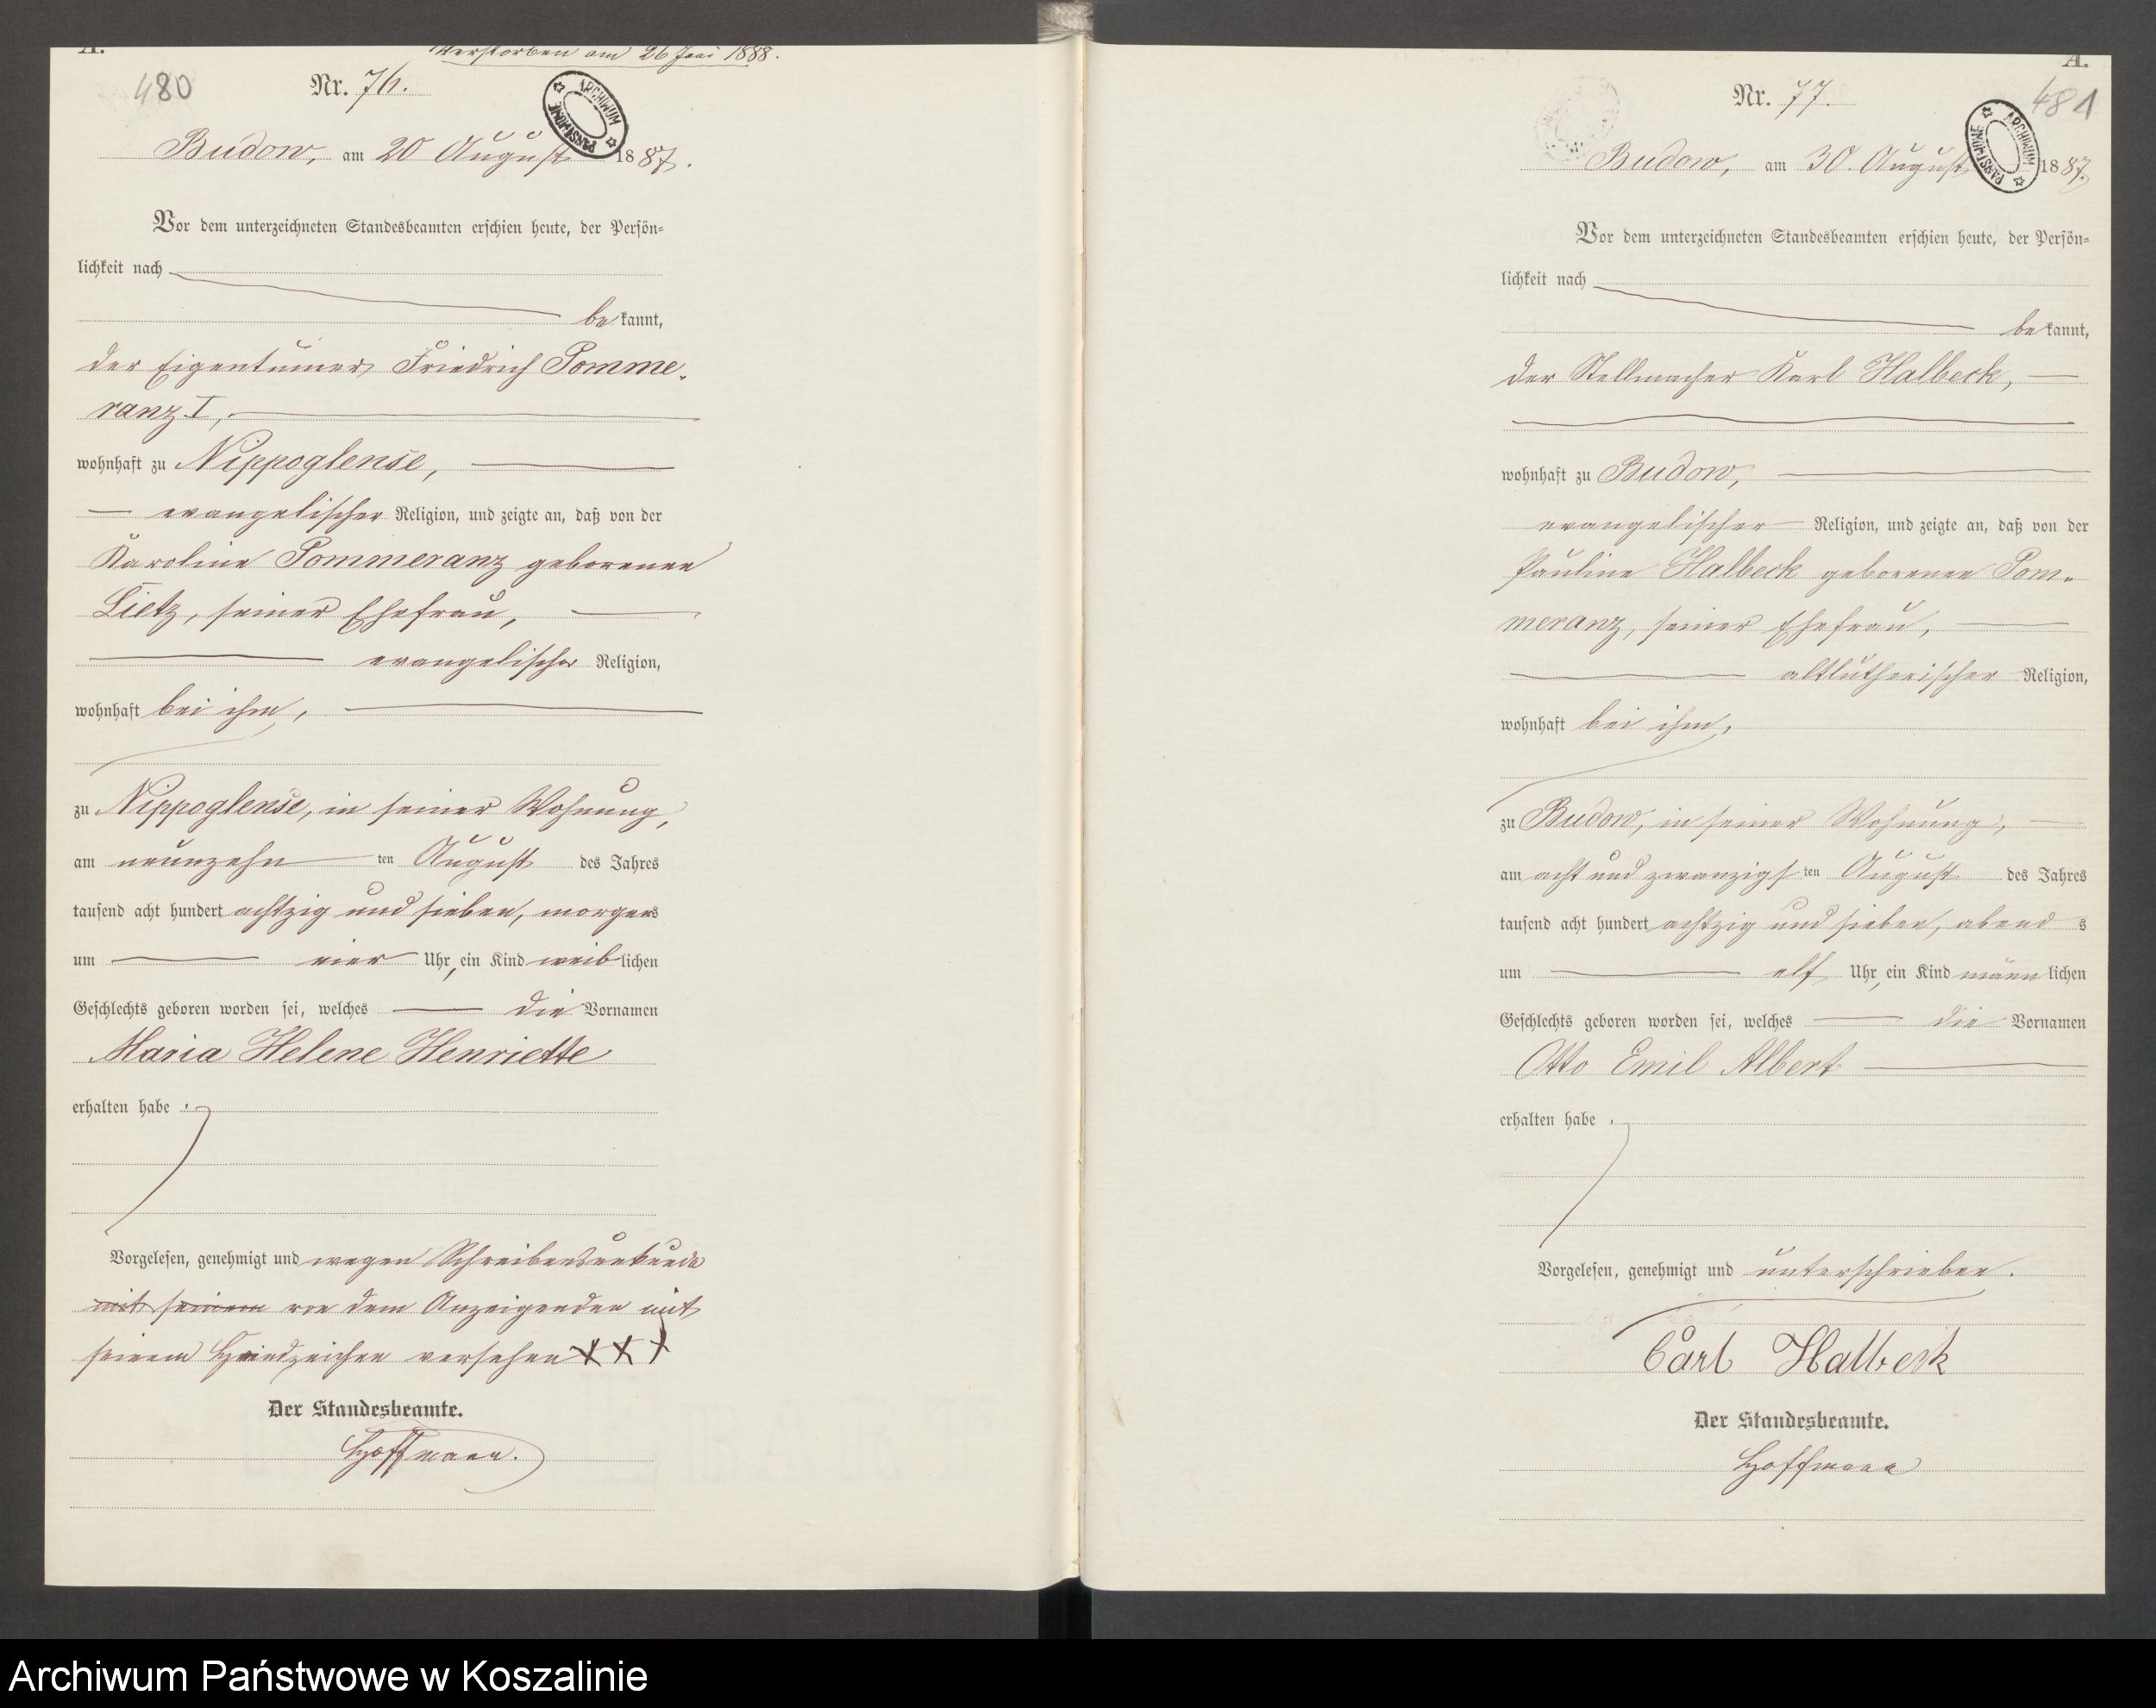 A.
Verstorben am 26 Juni 1888.
480
Nr. 76.
ARCHIWUM PAŃSTWOWE
Budow, am 20 August 1887.
Vor dem unterzeichneten Standesbeamten erschien heute, der Persön-
lichkeit nach
bekannt,
der Eigentümer Friedrich Pomme-
ranz I,
wohnhaft zu Nippoglense,
evangelischer Religion, und zeigte an, daß von der
Karoline Pommeranz geborenen
Lietz, seiner Ehefrau,
evangelischer Religion,
wohnhaft bei ihm,
zu Nippoglense, in seiner Wohnung,
am neunzehn ten August des Jahres
tausend acht hundert achtzig und sieben, morgens
um vier Uhr, ein Kind weiblichen
Geschlechts geboren worden sei, welches die Vornamen
Maria Helene Henriette
erhalten habe.
Vorgelesen, genehmigt und wegen Schreibensunkunde
mit seinem von dem Anzeigenden mit
seinem Handzeichen versehen XXX
Der Standesbeamte.
Hoffmann.
A.
481
Nr. 77.
ARCHIWUM PAŃSTWOWE
Budow, am 30. August 1887.
Vor dem unterzeichneten Standesbeamten erschien heute, der Persön-
lichkeit nach
bekannt,
der Stellmacher Karl Halbeck,
wohnhaft zu Budow,
evangelischer Religion, und zeigte an, daß von der
Pauline Halbeck geborenen Pom-
meranz, seiner Ehefrau,
altlutherischer Religion,
wohnhaft bei ihm,
zu Budow, in seiner Wohnung,
am acht und zwanzigsten August des Jahres
tausend acht hundert achtzig und sieben, abends
um elf Uhr, ein Kind männlichen
Geschlechts geboren worden sei, welches die Vornamen
Otto Emil Albert
erhalten habe.
Vorgelesen, genehmigt und unterschrieben.
Carl Halbeck
Der Standesbeamte.
Hoffmann
Archiwum Państwowe w Koszalinie